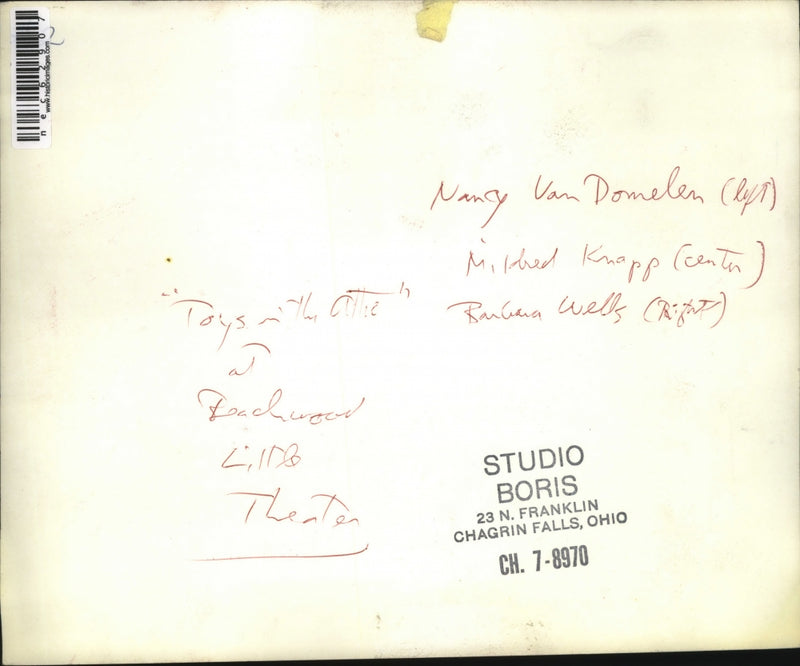 nec62907
www.historicimages.com
Nancy Van Domelen (left)
Mildred Knapp (center)
Barbara Wells (Right)
"Toys in the Attic"
at
Beachwood
Little
Theater
STUDIO
BORIS
23 N. FRANKLIN
CHAGRIN FALLS, OHIO
CH. 7-8970